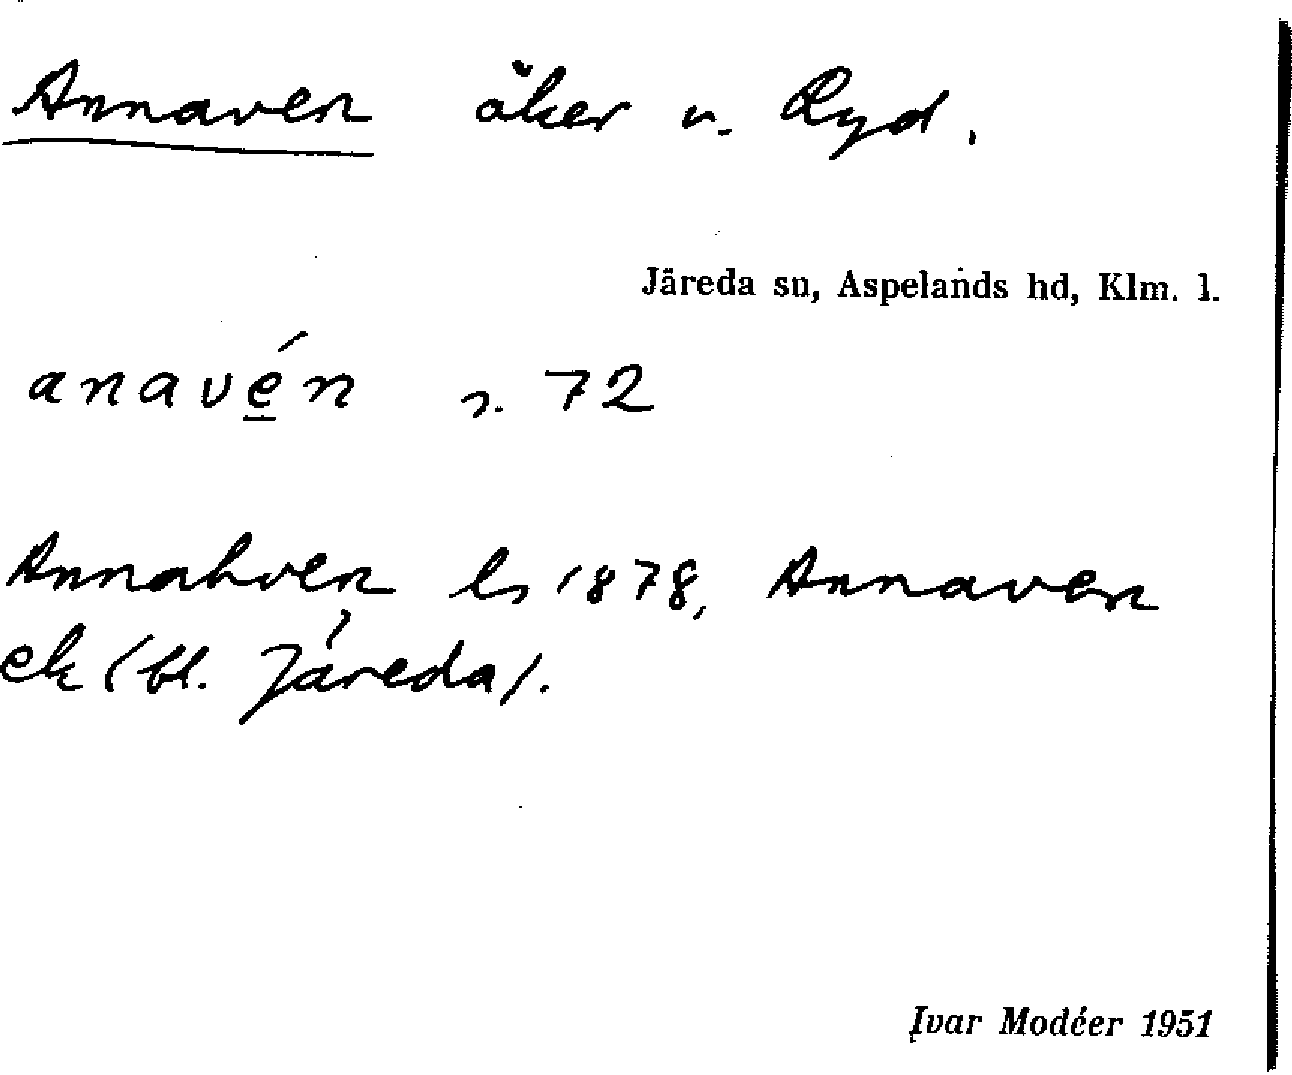 Annaven åker u. Ryd.
Järeda sn, Aspelands hd, Klm. l.
anavén s. 72
Annahven ls 1878, Annaven
ek (bl. Järeda).
Ivar Modéer 1951